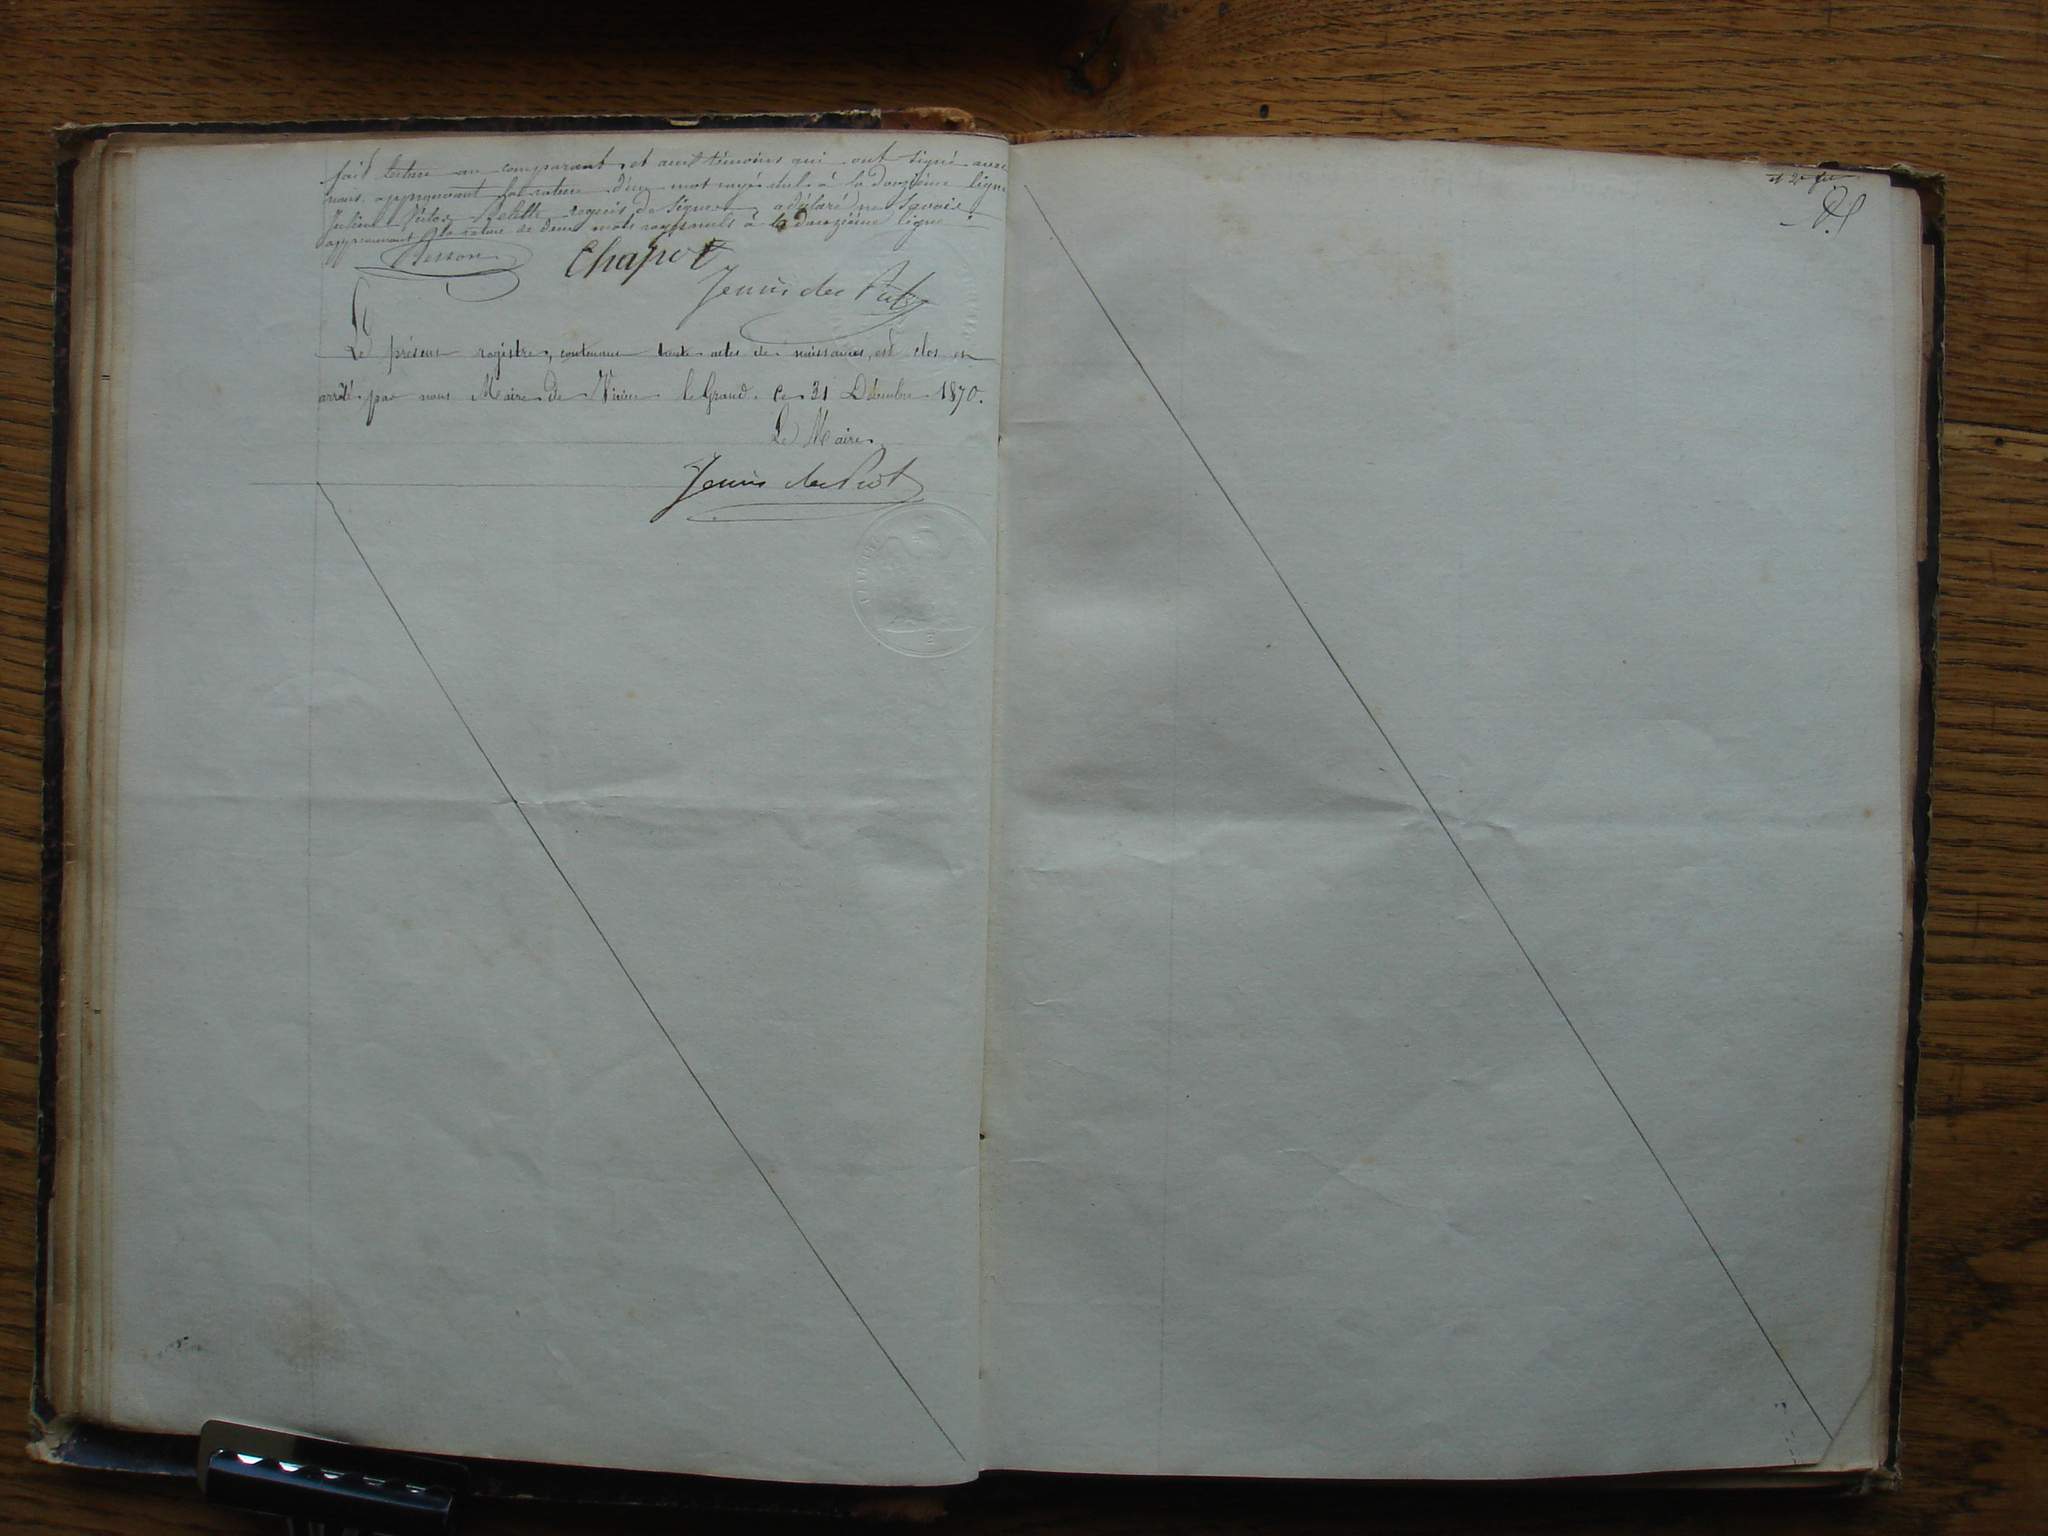 fait lecture au comparant et aux témoins qui ont signé avec
nous, approuvant la rature d'un mot rayé nul à la douzième ligne
requis de signer a déclaré ne savoir
approuvant la rature de deux mots rayés nuls à la douzième ligne
Besson
Chapot
Jenin des Prôt
Le présent registre, contenant trente actes de naissances, est clos et
arrêté par nous Maire de Virieu le Grand. Ce 31 Décembre 1870.
Le Maire
Jenin des Prôt
MAIRIE